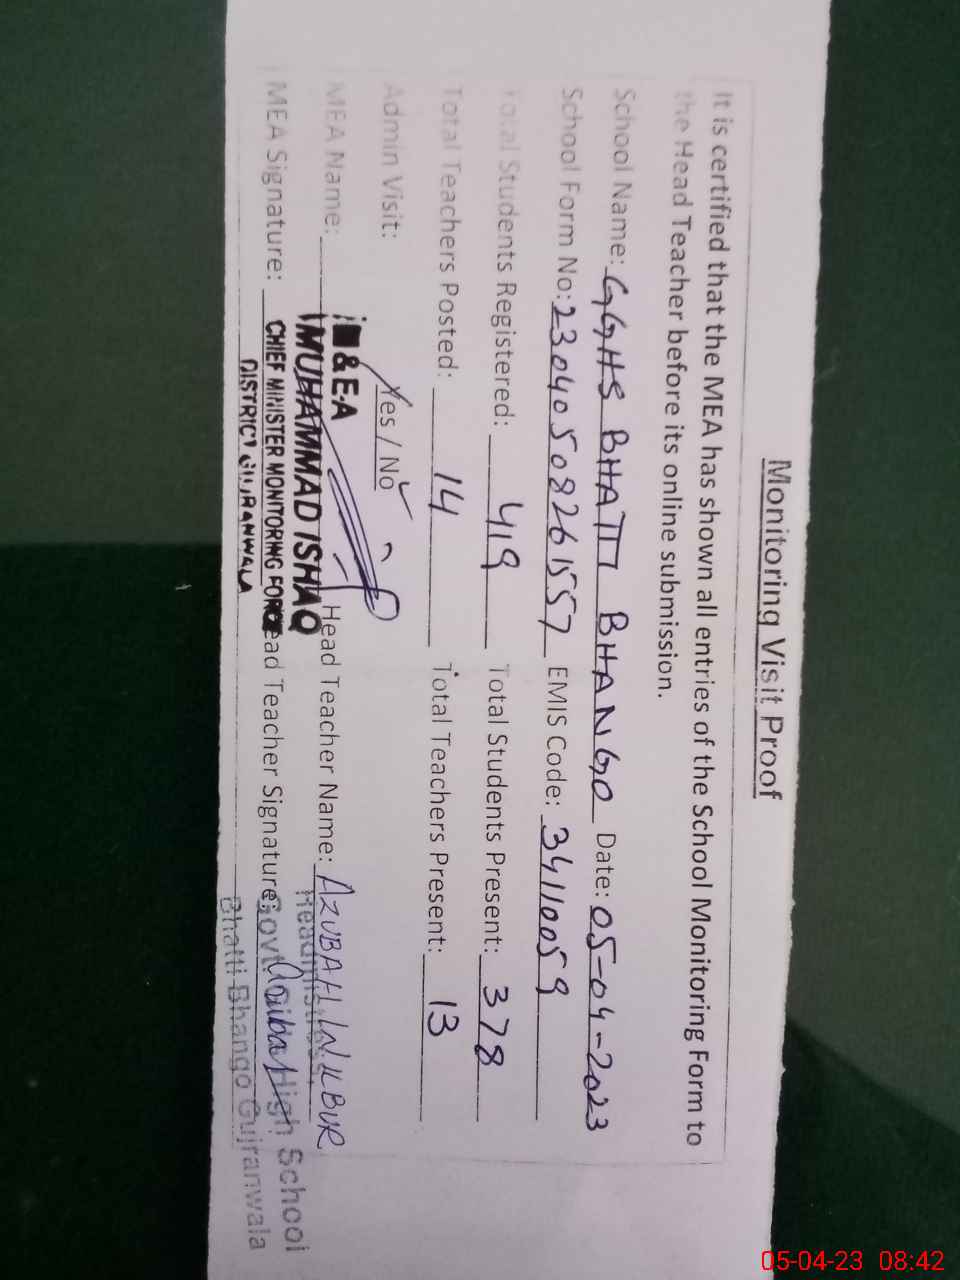 Monitoring Visit Proof
It is certified that the MEA has shown all entries of the School Monitoring Form to
the Head Teacher before its online submission.
School Name: GGHS BHATTI BHANGO Date: 05-04-2023
School Form No: 23040508261557 EMIS Code: 34110059
Total Students Registered: 419 Total Students Present: 378
Total Teachers Posted: 14 Total Teachers Present: 13
Admin Visit: Yes / No
& E-A
MEA Name: MUHAMMAD ISHAQ Head Teacher Name:
Headmistress
MEA Signature: CHIEF MINISTER MONITORING FORCE Head Teacher Signature:
Govt. High School
DISTRICT GUJRANWALA
Bhatti Bhango Gujranwala
05-04-23 08:42